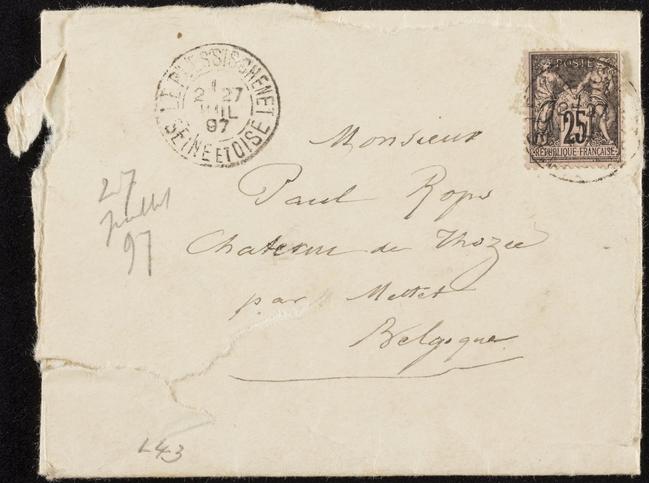 LE PLESSIS CHENET
2 27
JUIL
97
SEINE ET OISE
POSTE
25
RÉPUBLIQUE FRANÇAISE
Monsieur
Paul Rops
Chateau de Thozée
par Mettet
Belgique
27
juillet
97
L43